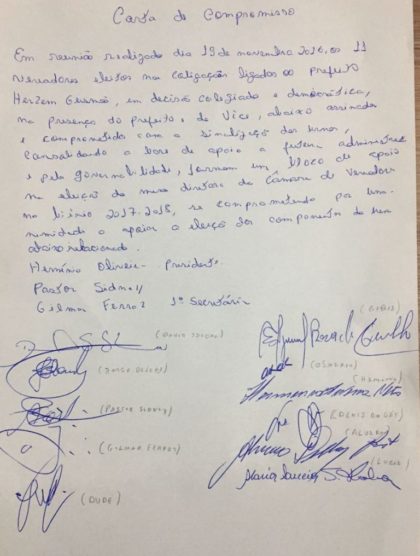 Carta de Compromisso
Em reunião realizada dia 19 de novembro 2016, os 11
vereadores eleitos na coligação ligados ao prefeito
Herzem Gusmão, em decisão colegiada e democrática,
na presença do prefeito e do Vice, abaixo assinados
e comprometidos com a sinalização das urnas,
Consolidando a base de apoio a futura administração
e pela governabilidade, formam um bloco de apoio
na eleição da mesa diretora da Câmara de Vereadores
no biênio 2017-2018, se comprometendo por una-
nimidade a apoiar a eleição dos componentes da mesa
abaixo relacionado.
Hermínio Oliveira - Presidente
Pastor Sidney
Gilmar Ferraz 1º Secretário
(BIBIA)
(DAVID SALOMÃO)
(OSMÁRIO)
(JORGE BEZERRA)
(HERMÍNIO)
(PASTOR SIDNEY)
(GILMAR FERRAZ)
(ALVARO)
(LÚCIA)
(DUDÉ)